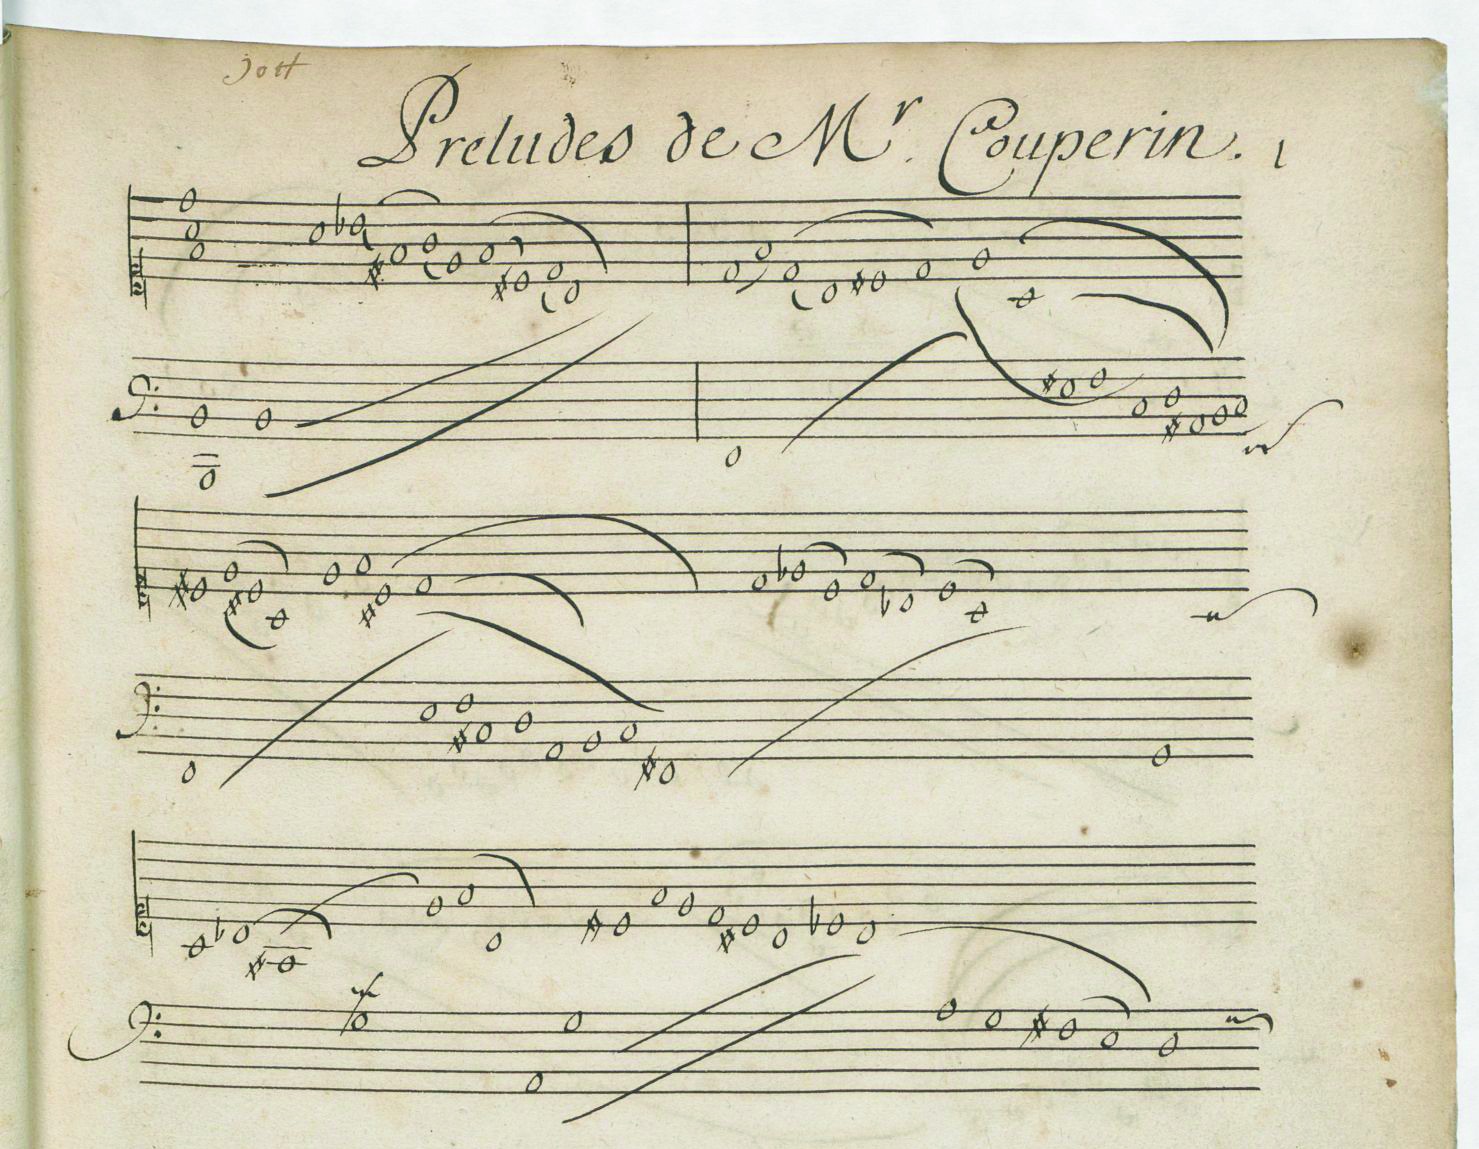 Preludes de Mr. Couperin. 1